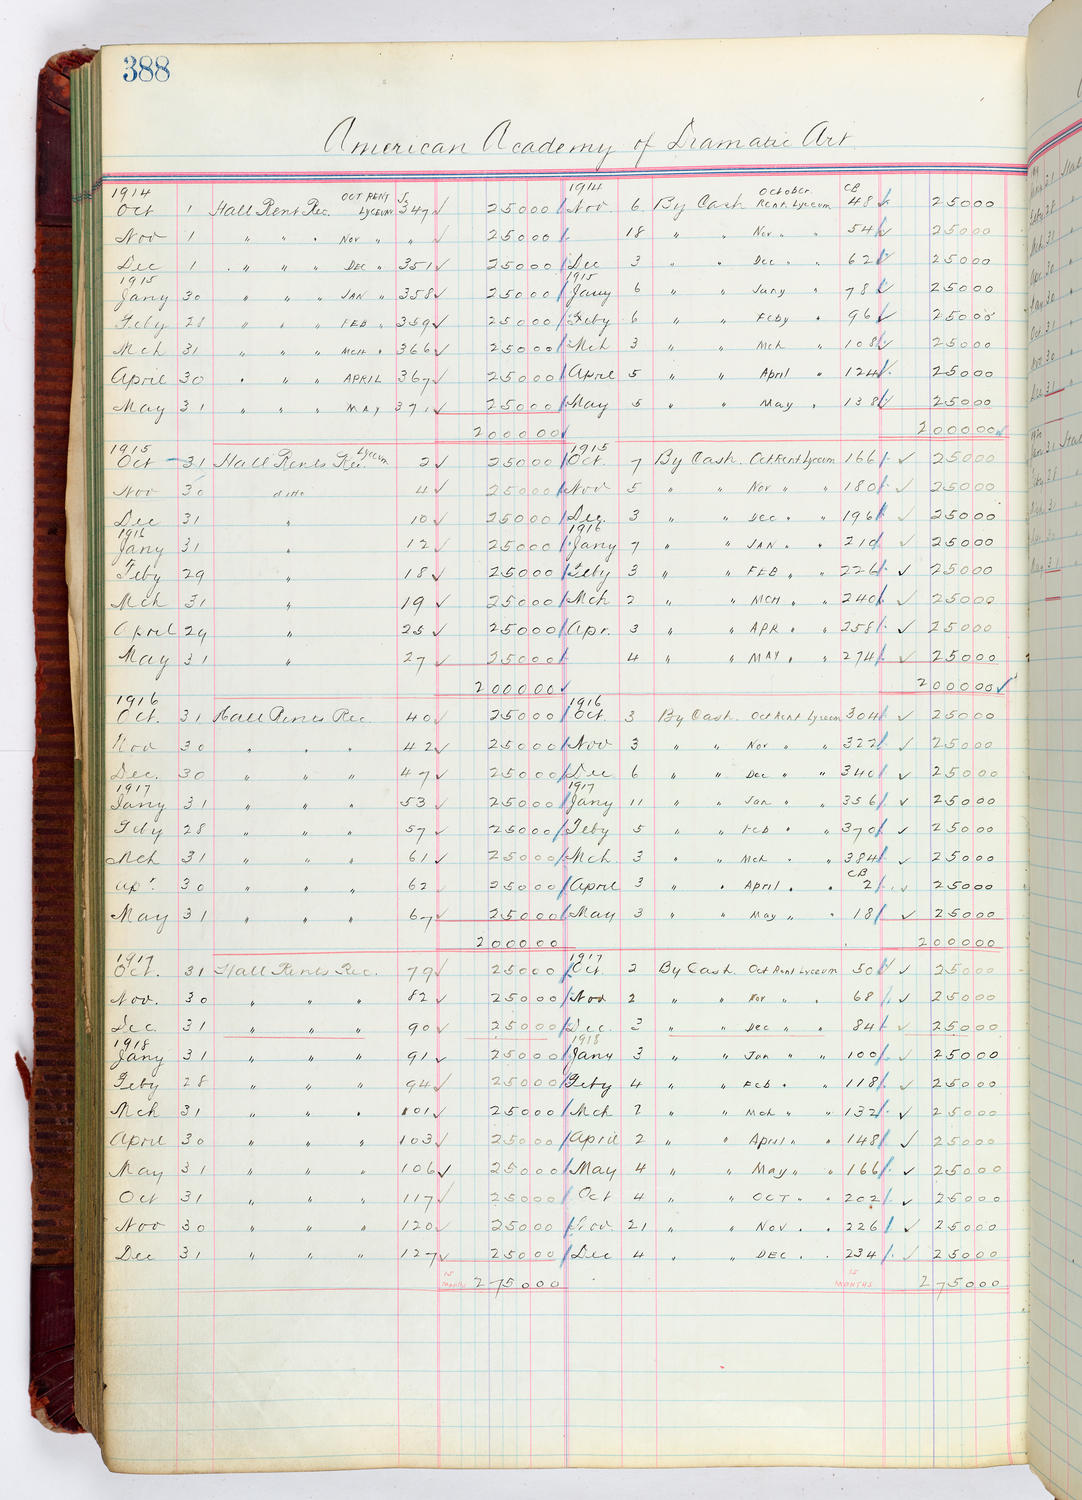 388
American Academy of Dramatic Art
1914 1914 October CB
Oct 1 Hall Rent Rec. OCT RENT LYCEUM J. 347 ✓ 25000 Nov. 6 By Cash Rent Lyceum 48 ✓ 25000
Nov 1 " " " Nov " " ✓ 25000 18 " " Nov " " 54 ✓ 25000
Dec 1 " " " DEC " 351 ✓ 25000 Dec 3 " " Dec " " 62 ✓ 25000
1915 1915
Jany 30 " " " JAN " 358 ✓ 25000 Jany 6 " " Jany " 78 ✓ 25000
Feby 28 " " " FEB " 359 ✓ 25000 Feby 6 " " Feby " 96 ✓ 25000
Mch 31 " " " MCH " 366 ✓ 25000 Mch 3 " " Mch " 108 ✓ 25000
April 30 " " " APRIL 367 ✓ 25000 April 5 " " April " 124 ✓ 25000
May 31 " " " MAY 371 ✓ 25000 May 5 " " May " 138 ✓ 25000
200000 ✓ 200000 ✓
1915 1915
Oct 31 Hall Rents Rec. Lyceum 2 ✓ 25000 Oct. 7 By Cash. Oct Rent Lyceum 166 ✓ 25000
Nov 30 ditto 4 ✓ 25000 Nov 5 " " Nov " " 180 ✓ 25000
Dec 31 " 10 ✓ 25000 Dec. 3 " " Dec " " 196 ✓ 25000
1916 1916
Jany 31 " 12 ✓ 25000 Jany 7 " " JAN " " 210 ✓ 25000
Feby 29 " 18 ✓ 25000 Feby 3 " " FEB " " 226 ✓ 25000
Mch 31 " 19 ✓ 25000 Mch 2 " " MCH " " 240 ✓ 25000
April 29 " 25 ✓ 25000 Apr. 3 " " APR " " 258 ✓ 25000
May 31 " 27 ✓ 25000 4 " " MAY " " 274 ✓ 25000
200000 ✓ 200000 ✓
1916 1916
Oct. 31 Hall Rents Rec. 40 ✓ 25000 Oct. 3 By Cash. Oct Rent Lyceum 304 ✓ 25000
Nov 30 " " " 42 ✓ 25000 Nov 3 " " Nov " " 322 ✓ 25000
Dec. 30 " " " 47 ✓ 25000 Dec 6 " " Dec " " 340 ✓ 25000
1917 1917
Jany 31 " " " 53 ✓ 25000 Jany 11 " " Jan " " 356 ✓ 25000
Feby 28 " " " 57 ✓ 25000 Feby 5 " " Feb " " 370 ✓ 25000
Mch 31 " " " 61 ✓ 25000 Mch. 3 " " Mch " " 384 ✓ 25000
CB
Apr. 30 " " " 62 25000 April 3 " " April " " 2 ✓ 25000
May 31 " " " 67 ✓ 25000 May 3 " " May " " 18 ✓ 25000
200000 200000
1917 1917
Oct. 31 Hall Rents Rec. 79 ✓ 25000 Oct. 2 By Cash. Oct Rent Lyceum 50 ✓ 25000
Nov. 30 " " " 82 ✓ 25000 Nov 2 " " Nov " " 68 ✓ 25000
Dec. 31 " " " 90 ✓ 25000 Dec. 3 " " Dec " " 84 ✓ 25000
1918 1918
Jany 31 " " " 91 ✓ 25000 Jany 3 " " Jan " " 100 ✓ 25000
Feby 28 " " " 94 ✓ 25000 Feby 4 " " Feb " " 118 ✓ 25000
Mch 31 " " " 101 ✓ 25000 Mch 2 " " Mch " " 132 ✓ 25000
April 30 " " " 103 ✓ 25000 April 2 " " April " " 148 ✓ 25000
May 31 " " " 106 ✓ 25000 May 4 " " May " " 166 ✓ 25000
Oct 31 " " " 117 ✓ 25000 Oct 4 " " OCT " " 202 ✓ 25000
Nov 30 " " " 120 ✓ 25000 Nov 21 " " Nov " " 226 ✓ 25000
Dec 31 " " " 127 ✓ 25000 Dec 4 " " DEC " " 234 ✓ 25000
Months 275000 MONTHS 275000